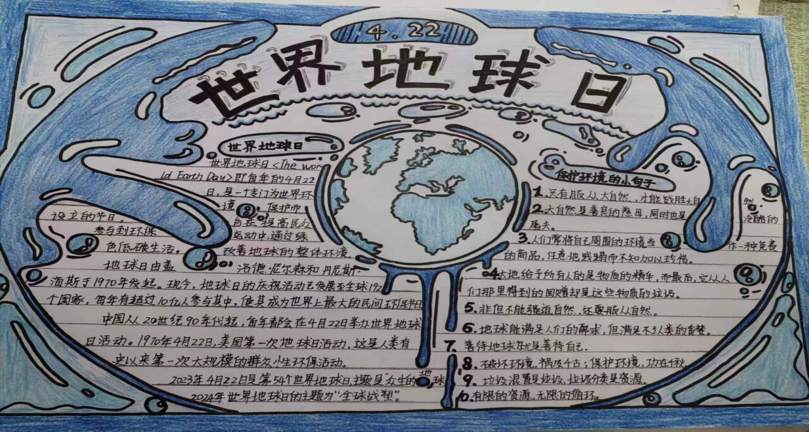 4.22
世界地球日
世界地球日
世界地球日<The wor
ld Earth Day>即每年的4月22
日,是一个专门为世界环
境保护而
设立的节日,旨在提高民众
参与到环保运动中,通过绿
色低碳生活。改善地球的整体环境
地球日由盖洛德·尼尔森和丹尼斯·
海斯于1970年发起。现今,地球日的庆祝活动已发展至全球192
个国家,每年有超过10亿人参与其中,使其成为世界上最大的民间环保节日
中国从20世纪90年代起,每年都会在4月22日举办世界地球
日活动。1970年4月22日,美国第一次地球日活动,这是人类有
史以来第一次大规模的群众性环保活动。
2023年4月22日是第54个世界地球日,主题是"众生的地球
2024年世界地球日的主题为"全球战塑"。
保护环境的小句子
1.只有服从大自然,才能战胜大自然
2.大自然是善良的慈母,同时也是冷酷的
屠夫。
3.人们常将自己周围的环境当作一种免费
的商品,任意地糟蹋而不知加以珍惜。
4.大地给予所有人的是物质的精华,而最后,它从人
们那里得到的回赠却是这些物质的垃圾。
5.非但不能强迫自然,还要服从自然。
6.地球能满足人们的需求,但满足不了人类的贪婪。
7.善待地球就是善待自己。
8.破坏环境,祸及千古;保护环境,功在千秋
9.垃圾混置是垃圾,垃圾分类是资源。
10.有限的资源,无限的循环。